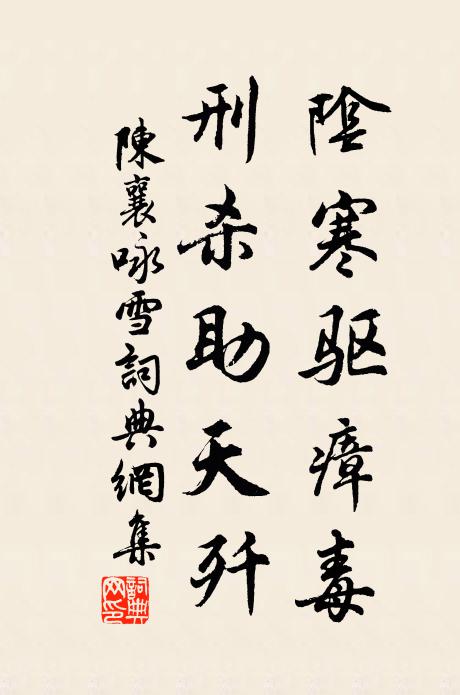 陰寒驱瘴毒
刑杀助天歼
陳襄咏雪詞典網集
詞典网印